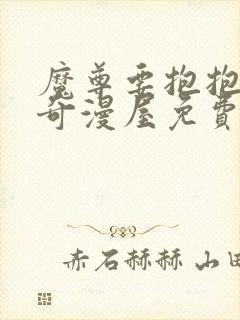 魔尊要抱抱
奇漫屋免費
赤石赫赫 山田